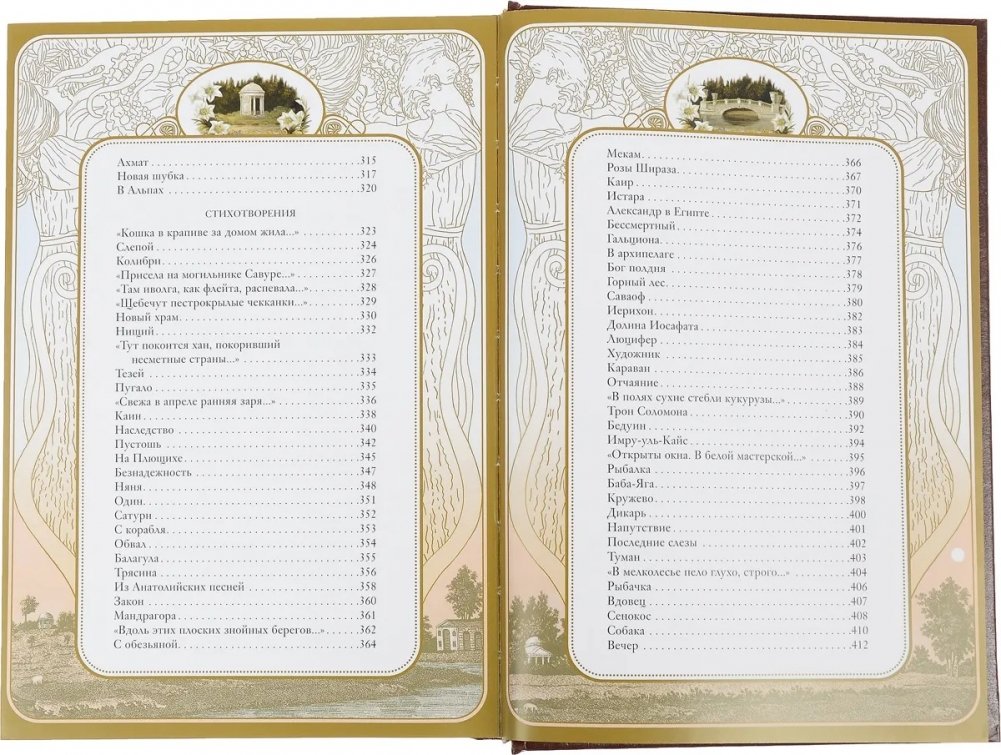 Ахмат . . . . . . . . . . . . . . . . . . . . . . . . . . . . . 315
Новая шубка . . . . . . . . . . . . . . . . . . . . . . . . 317
В Альпах . . . . . . . . . . . . . . . . . . . . . . . . . . . 320
СТИХОТВОРЕНИЯ
«Кошка в крапиве за домом жила...» . . . . . . . . 323
Слепой . . . . . . . . . . . . . . . . . . . . . . . . . . . . 324
Колибри . . . . . . . . . . . . . . . . . . . . . . . . . . . 326
«Присела на могильнике Савуре...» . . . . . . . . . 327
«Там иволга, как флейта, распевала...» . . . . . . . 328
«Щебечут пестрокрылые чекканки...» . . . . . . . . 329
Новый храм . . . . . . . . . . . . . . . . . . . . . . . . . 330
Нищий . . . . . . . . . . . . . . . . . . . . . . . . . . . . 332
«Тут покоится хан, покоривший
несметные страны...» . . . . . . . . . . . . . . . . . 333
Тезей . . . . . . . . . . . . . . . . . . . . . . . . . . . . . 334
Пугало . . . . . . . . . . . . . . . . . . . . . . . . . . . . 335
«Свежа в апреле ранняя заря...» . . . . . . . . . . . 336
Каин . . . . . . . . . . . . . . . . . . . . . . . . . . . . . 338
Наследство . . . . . . . . . . . . . . . . . . . . . . . . . 340
Пустошь . . . . . . . . . . . . . . . . . . . . . . . . . . . 342
На Плющихе . . . . . . . . . . . . . . . . . . . . . . . . 345
Безнадежность . . . . . . . . . . . . . . . . . . . . . . . 347
Няня . . . . . . . . . . . . . . . . . . . . . . . . . . . . . 348
Один . . . . . . . . . . . . . . . . . . . . . . . . . . . . . 351
Сатурн . . . . . . . . . . . . . . . . . . . . . . . . . . . . 352
С корабля . . . . . . . . . . . . . . . . . . . . . . . . . . 353
Обвал . . . . . . . . . . . . . . . . . . . . . . . . . . . . 354
Балагула . . . . . . . . . . . . . . . . . . . . . . . . . . . 355
Трясина . . . . . . . . . . . . . . . . . . . . . . . . . . . 356
Из Анатолийских песней . . . . . . . . . . . . . . . . 358
Закон . . . . . . . . . . . . . . . . . . . . . . . . . . . . . 360
Мандрагора . . . . . . . . . . . . . . . . . . . . . . . . . 361
«Вдоль этих плоских знойных берегов...» . . . . . 362
С обезьяной . . . . . . . . . . . . . . . . . . . . . . . . . 364
Мекам . . . . . . . . . . . . . . . . . . . . . . . . . . . . 366
Розы Шираза . . . . . . . . . . . . . . . . . . . . . . . . 367
Каир . . . . . . . . . . . . . . . . . . . . . . . . . . . . . 370
Истара . . . . . . . . . . . . . . . . . . . . . . . . . . . . 371
Александр в Египте . . . . . . . . . . . . . . . . . . . . 372
Бессмертный . . . . . . . . . . . . . . . . . . . . . . . . 374
Гальциона . . . . . . . . . . . . . . . . . . . . . . . . . . 376
В архипелаге . . . . . . . . . . . . . . . . . . . . . . . . 377
Бог полдня . . . . . . . . . . . . . . . . . . . . . . . . . 378
Горный лес . . . . . . . . . . . . . . . . . . . . . . . . . 379
Саваоф . . . . . . . . . . . . . . . . . . . . . . . . . . . . 380
Иерихон . . . . . . . . . . . . . . . . . . . . . . . . . . . 382
Долина Иосафата . . . . . . . . . . . . . . . . . . . . . 383
Люцифер . . . . . . . . . . . . . . . . . . . . . . . . . . 384
Художник . . . . . . . . . . . . . . . . . . . . . . . . . . 385
Караван . . . . . . . . . . . . . . . . . . . . . . . . . . . 386
Отчаяние . . . . . . . . . . . . . . . . . . . . . . . . . . 388
«В полях сухие стебли кукурузы...» . . . . . . . . . 389
Трон Соломона . . . . . . . . . . . . . . . . . . . . . . . 390
Бедуин . . . . . . . . . . . . . . . . . . . . . . . . . . . . 392
Имру-уль-Кайс . . . . . . . . . . . . . . . . . . . . . . . 394
«Открыты окна. В белой мастерской...» . . . . . . 395
Рыбалка . . . . . . . . . . . . . . . . . . . . . . . . . . . 396
Баба-Яга . . . . . . . . . . . . . . . . . . . . . . . . . . . 397
Кружево . . . . . . . . . . . . . . . . . . . . . . . . . . . 398
Дикарь . . . . . . . . . . . . . . . . . . . . . . . . . . . . 400
Напутствие . . . . . . . . . . . . . . . . . . . . . . . . . 401
Последние слезы . . . . . . . . . . . . . . . . . . . . . . 402
Туман . . . . . . . . . . . . . . . . . . . . . . . . . . . . . 403
«В мелколесье пело глухо, строго...» . . . . . . . . 404
Рыбачка . . . . . . . . . . . . . . . . . . . . . . . . . . . 406
Вдовец . . . . . . . . . . . . . . . . . . . . . . . . . . . . 407
Сенокос . . . . . . . . . . . . . . . . . . . . . . . . . . . 408
Собака . . . . . . . . . . . . . . . . . . . . . . . . . . . . 410
Вечер . . . . . . . . . . . . . . . . . . . . . . . . . . . . . 412